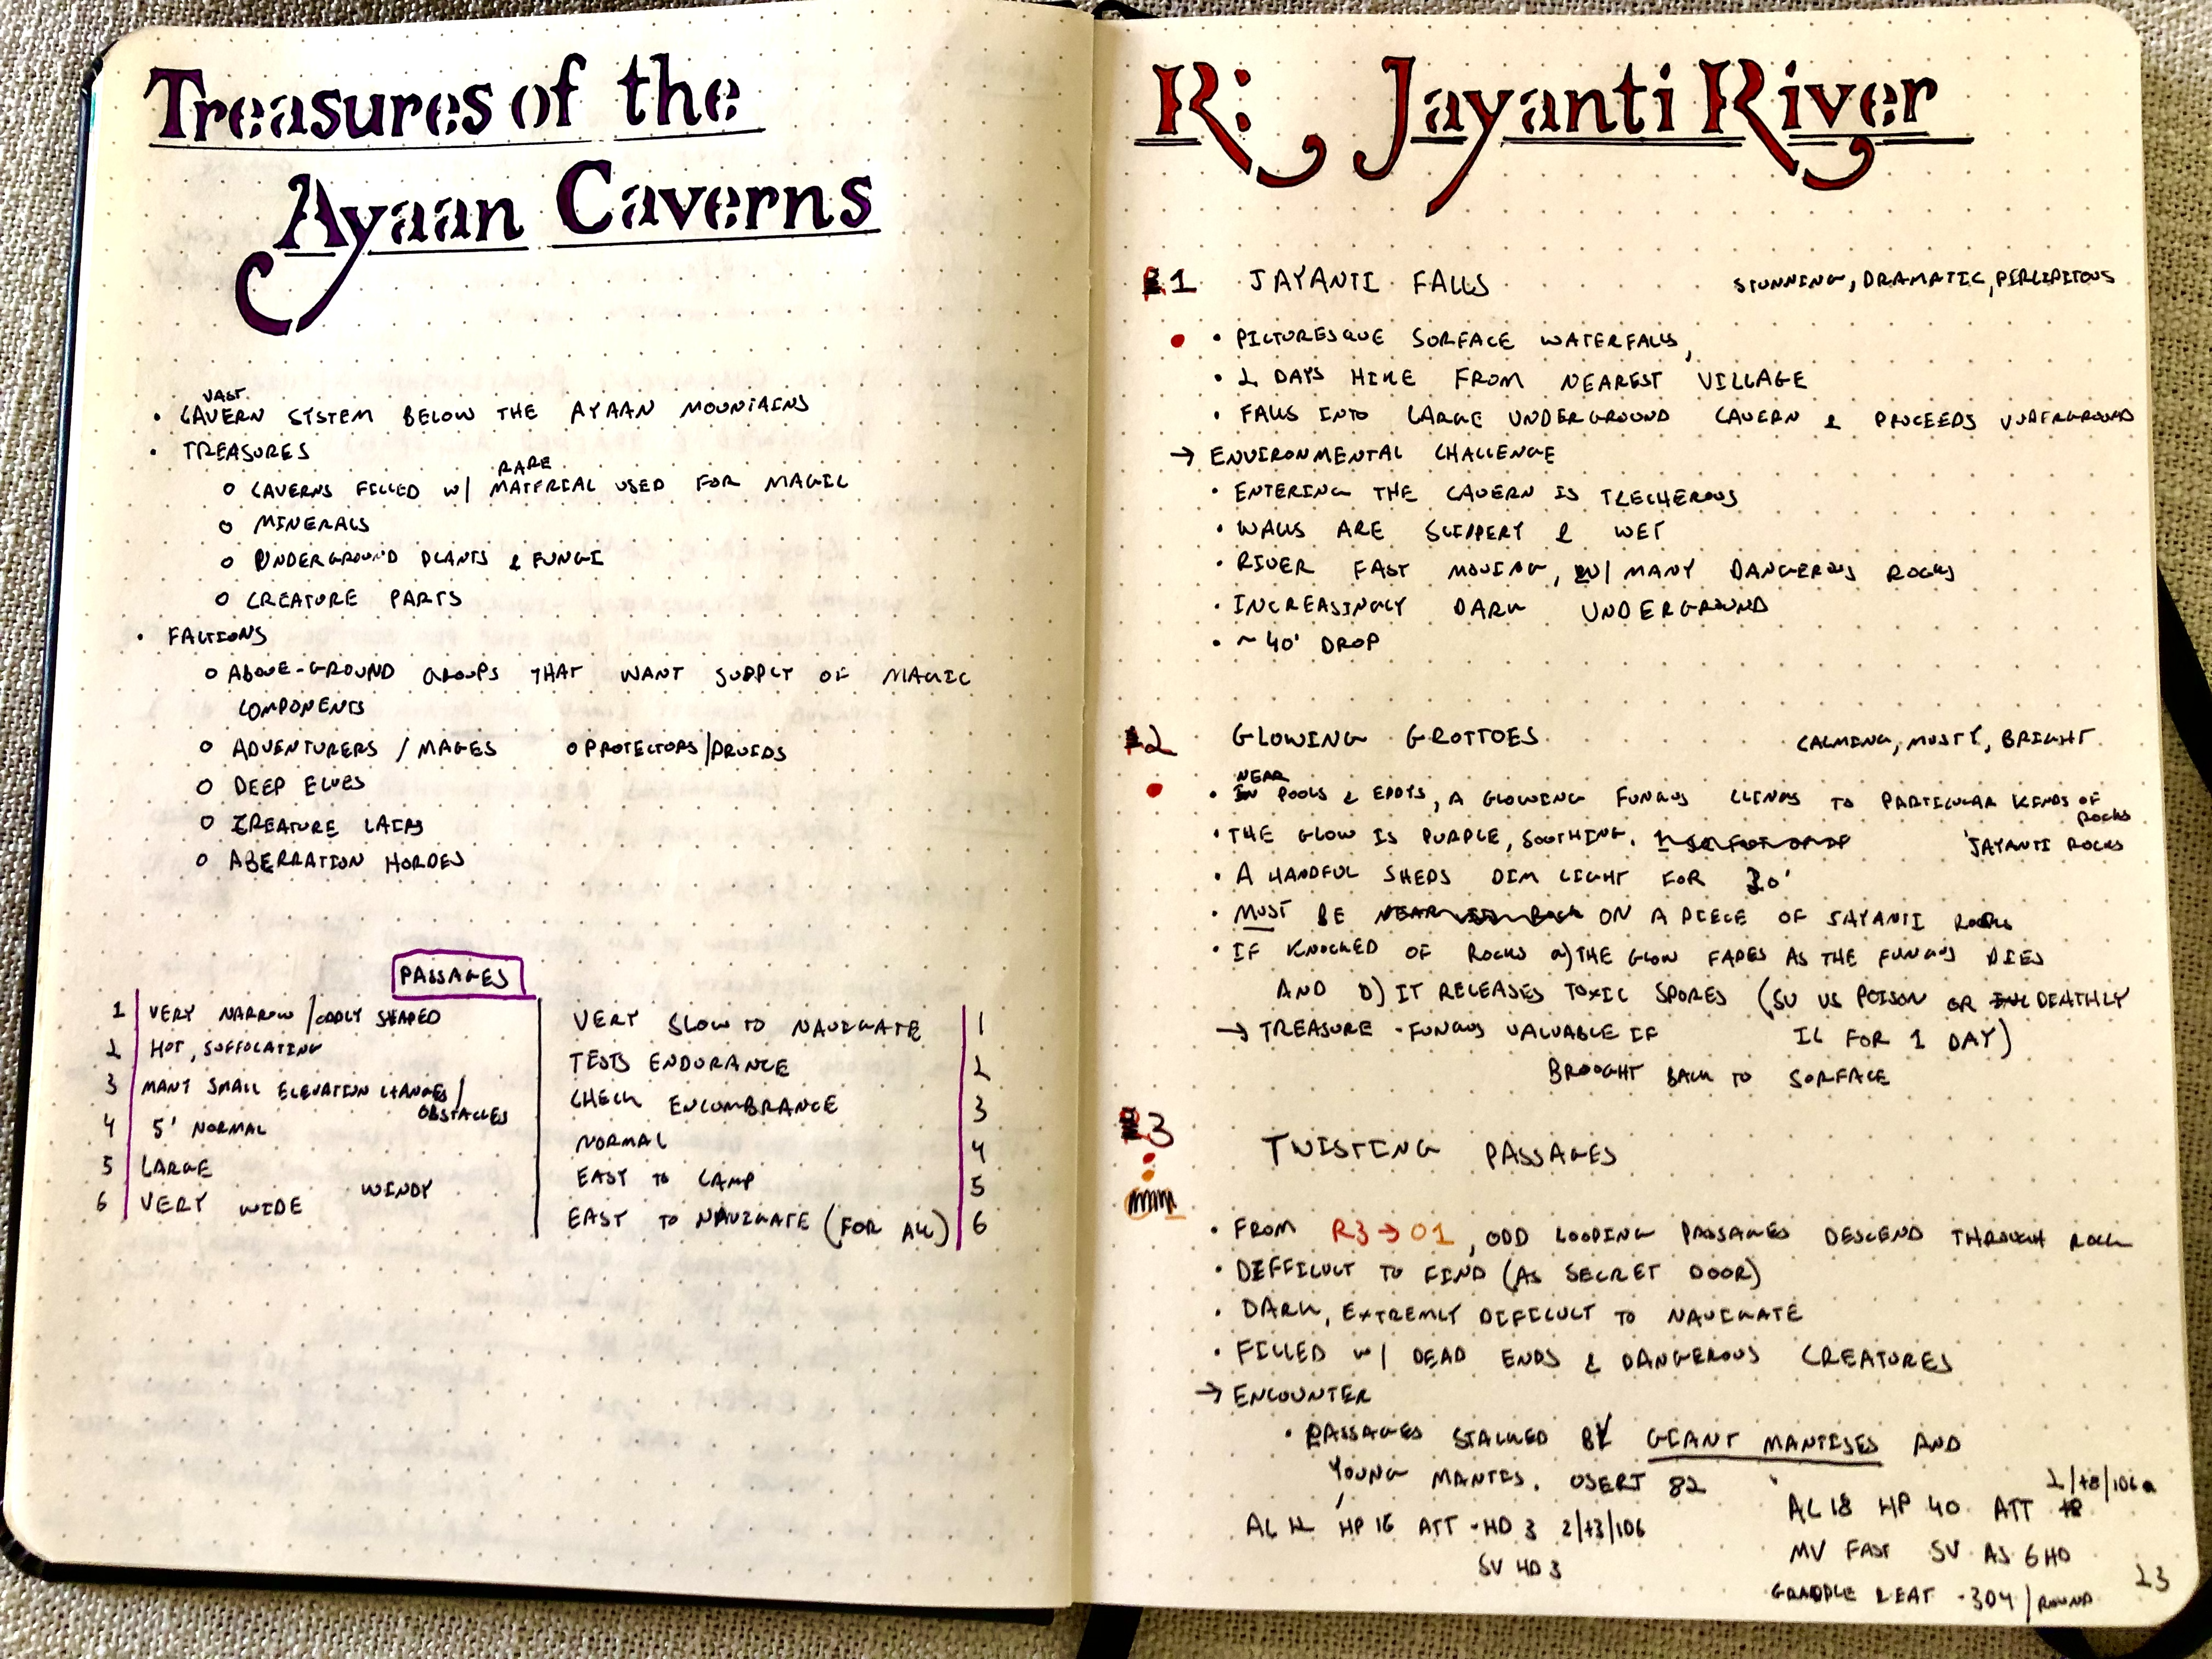 Treasures of the
Ayaan Caverns
VAST
• CAVERN SYSTEM BELOW THE AYAAN MOUNTAINS
• TREASURES
RARE
○ CAVERNS FILLED W/ MATERIAL USED FOR MAGIC
○ MINERALS
○ UNDERGROUND PLANTS & FUNGI
○ CREATURE PARTS
• FACTIONS
○ ABOVE-GROUND GROUPS THAT WANT SUPPLY OF MAGIC
COMPONENTS
○ ADVENTURERS / MAGES ○ PROTECTORS/DRUIDS
○ DEEP ELVES
○ CREATURE LAIRS
○ ABERRATION HORDES
PASSAGES
1 VERY NARROW / ODDLY SHAPED VERY SLOW TO NAVIGATE 1
2 HOT, SUFFOCATING TESTS ENDURANCE 2
3 MANY SMALL ELEVATION CHANGES / OBSTACLES CHECK ENCUMBRANCE 3
4 5' NORMAL NORMAL 4
5 LARGE EASY TO CAMP 5
6 VERY WIDE WINDY EASY TO NAVIGATE (FOR ALL) 6
R: Jayanti River
R1 JAYANTI FALLS STUNNING, DRAMATIC, PERCIPITOUS
• PICTURESQUE SURFACE WATERFALLS,
• 2 DAYS HIKE FROM NEAREST VILLAGE
• FALLS INTO LARGE UNDERGROUND CAVERN & PROCEEDS UNDERGROUND
→ ENVIRONMENTAL CHALLENGE
• ENTERING THE CAVERN IS TRECHEROUS
• WALLS ARE SLIPPERY & WET
• RIVER FAST MOVING, W/ MANY DANGEROUS ROCKS
• INCREASINGLY DARK UNDERGROUND
• ~ 40' DROP
R2 GLOWING GROTTOES CALMING, MUSTY, BRIGHT
NEAR
• IN POOLS & EDDYS, A GLOWING FUNGUS CLINGS TO PARTICULAR KINDS OF
ROCKS
• THE GLOW IS PURPLE, SOOTHING. JAYANTI ROCKS
• A HANDFUL SHEDS DIM LIGHT FOR 30'
• MUST BE ON A PIECE OF JAYANTI ROCK
• IF KNOCKED OF ROCKS a) THE GLOW FADES AS THE FUNGUS DIES
AND b) IT RELEASES TOXIC SPORES (SV VS POISON OR DEATHLY
→ TREASURE - FUNGUS VALUABLE IF IL FOR 1 DAY)
BROUGHT BACK TO SURFACE
R3 TWISTING PASSAGES
• FROM R3 → O1, ODD LOOPING PASSAGES DESCEND THROUGH ROCK
• DIFFICULT TO FIND (AS SECRET DOOR)
• DARK, EXTREMLY DIFICULT TO NAVIGATE
• FILLED W/ DEAD ENDS & DANGEROUS CREATURES
→ ENCOUNTER
• PASSAGES STALKED BY GIANT MANTISES AND
YOUNG MANTES. OSERT 82
AC 12 HP 16 ATT - HD 3 2/+3/1D6
SV HD 3
2/+8/1D6
AC 18 HP 40 ATT
MV FAST SV AS 6HD
GRAPPLE & EAT - 3D4 / ROUND
23